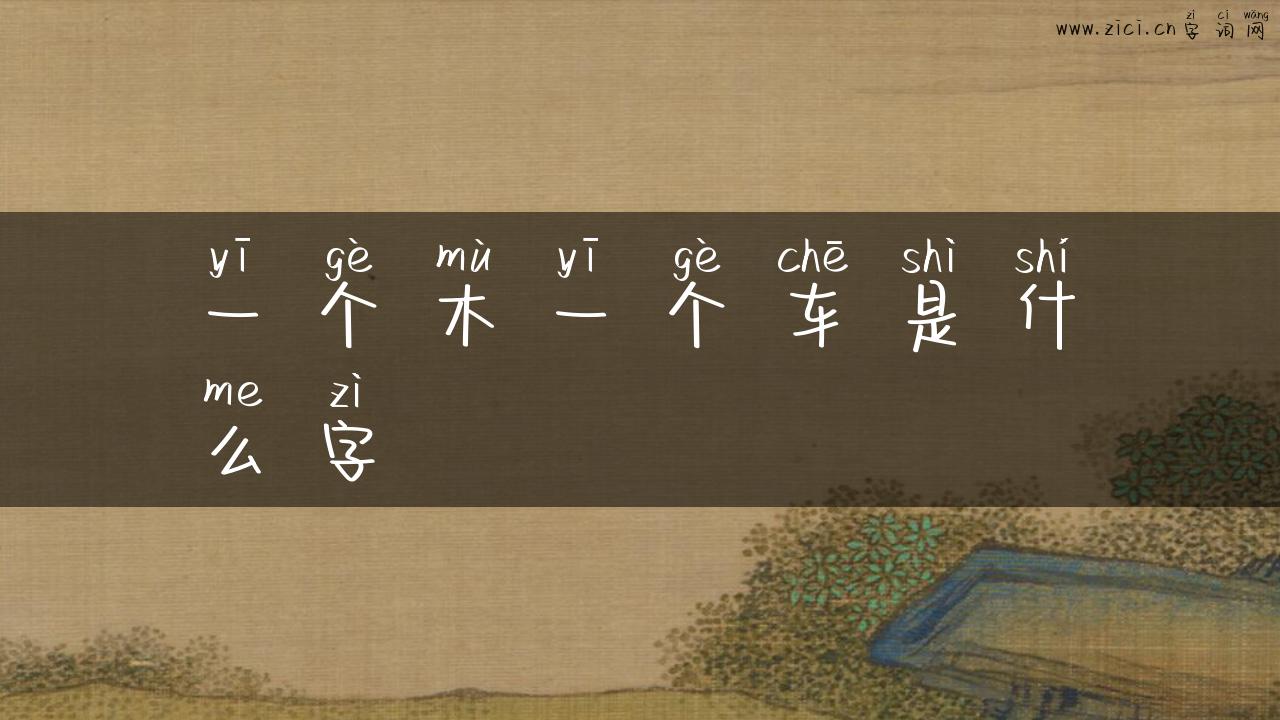 zì cí wǎng
www.zici.cn 字 词 网
yī gè mù yī gè chē shì shí
一 个 木 一 个 车 是 什
me zì
么 字